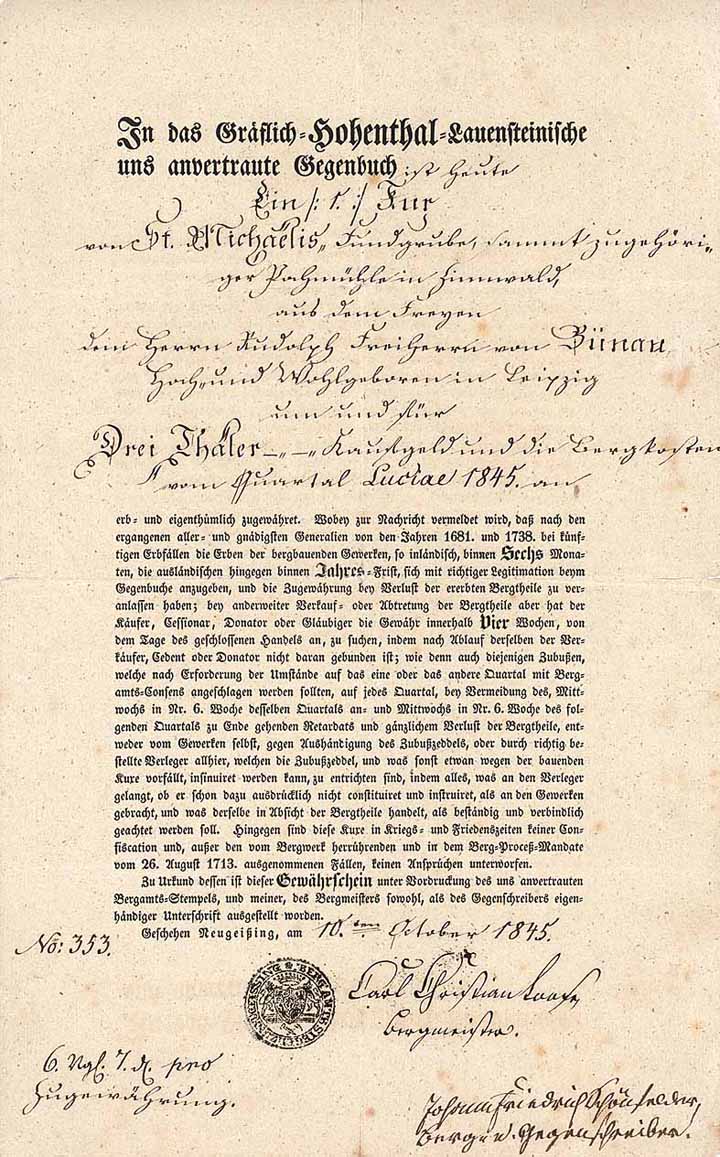 In das Gräflich-Hohenthal-Lauensteinische
uns anvertraute Gegenbuch ist heute
Ein /: 1. :/ Kux
von St. Michaelis, Fundgrube, sammt zugehöri-
ger Pochmühle in Zinnwald,
aus dem Freyen
dem Herrn Rudolph Freiherrn von Bünau
Hoch- und Wohlgeboren in Leipzig
um und für
Drei Thaler -„-„- Kaufgeld und die Bergkosten
vom Quartal Luciae 1845. an
erb- und eigenthümlich zugewähret. Wobey zur Nachricht vermeldet wird, daß nach den
ergangenen aller- und gnädigsten Generalien von den Jahren 1681. und 1738. bei künf-
tigen Erbfällen die Erben der bergbauenden Gewerken, so inländisch, binnen Sechs Mona-
ten, die ausländischen hingegen binnen Jahres-Frist, sich mit richtiger Legitimation beym
Gegenbuche anzugeben, und die Zugewährung bey Verlust der ererbten Bergtheile zu ver-
anlassen haben; bey anderweiter Verkauf- oder Abtretung der Bergtheile aber hat der
Käufer, Cessionar, Donator oder Gläubiger die Gewähr innerhalb Vier Wochen, von
dem Tage des geschlossenen Handels an, zu suchen, indem nach Ablauf derselben der Ver-
käufer, Cedent oder Donator nicht daran gebunden ist; wie denn auch diejenigen Zubußen,
welche nach Erforderung der Umstände auf das eine oder das andere Quartal mit Berg-
amts-Consens angeschlagen werden sollten, auf jedes Quartal, bey Vermeidung des, Mitt-
wochs in Nr. 6. Woche desselben Quartals an- und Mittwochs in Nr. 6. Woche des fol-
genden Quartals zu Ende gehenden Retardats und gänzlichem Verlust der Bergtheile, ent-
weder vom Gewerken selbst, gegen Aushändigung des Zubußzeddels, oder durch richtig be-
stellte Verleger allhier, welchen die Zubußzeddel, und was sonst etwan wegen der bauenden
Kuxe vorfällt, insinuiret werden kann, zu entrichten sind, indem alles, was an den Verleger
gelangt, ob er schon dazu ausdrücklich nicht constituiret und instruiret, als an den Gewerken
gebracht, und was derselbe in Absicht der Bergtheile handelt, als beständig und verbindlich
geachtet werden soll. Hingegen sind diese Kuxe in Kriegs- und Friedenszeiten keiner Con-
fiscation und, außer den vom Bergwerk herrührenden und in dem Berg-Proceß-Mandate
vom 26. August 1713. ausgenommenen Fällen, keinen Ansprüchen unterworfen.
Zu Urkund dessen ist dieser Gewährschein unter Vordruckung des uns anvertrauten
Bergamts-Stempels, und meiner, des Bergmeisters sowohl, als des Gegenschreibers eigen-
händiger Unterschrift ausgestellt worden.
Geschehen Neugeißing, am 10.ten October 1845.
No: 353.
Carl Christian
Bergmeister.
6. Ngl. 7. pro
Zugewährung.
Johann Friedrich Schönfelder,
Berg- u. Gegenschreiber.